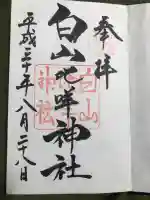 奉拝
白山比咩神社
平成三十年八月二十八日
白山
神社